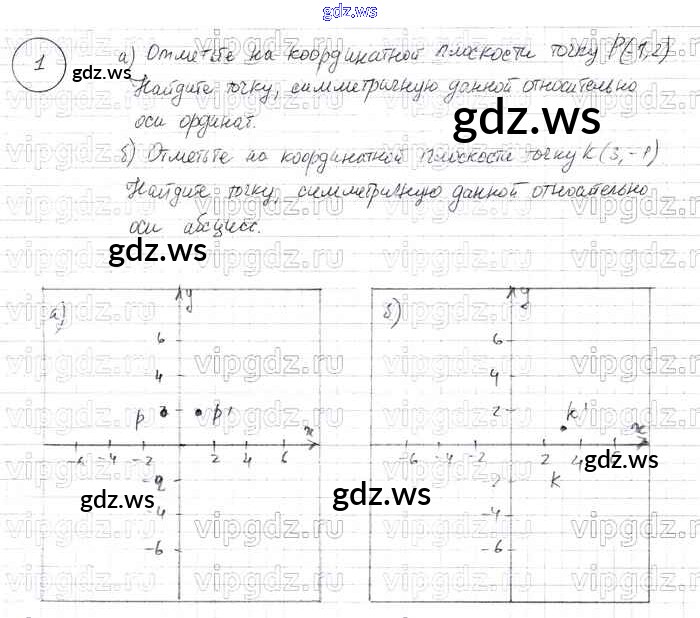 gdz.ws
1
а) Отметьте на координатной плоскости точку P(-1,2)
Найдите точку, симметричную данной относительно
оси ординат.
б) Отметьте на координатной плоскости точку K(3,-1)
Найдите точку, симметричную данной относительно
оси абсцисс.
gdz.ws
gdz.ws
gdz.ws
vipgdz.ru
а)
y
6
4
P
P'
x
-6 -4 -2 2 4 6
-2
-4
-6
б)
y
6
4
2
K'
x
-6 -4 -2 2 4 6
K
-2
-4
-6
gdz.ws
gdz.ws
gdz.ws